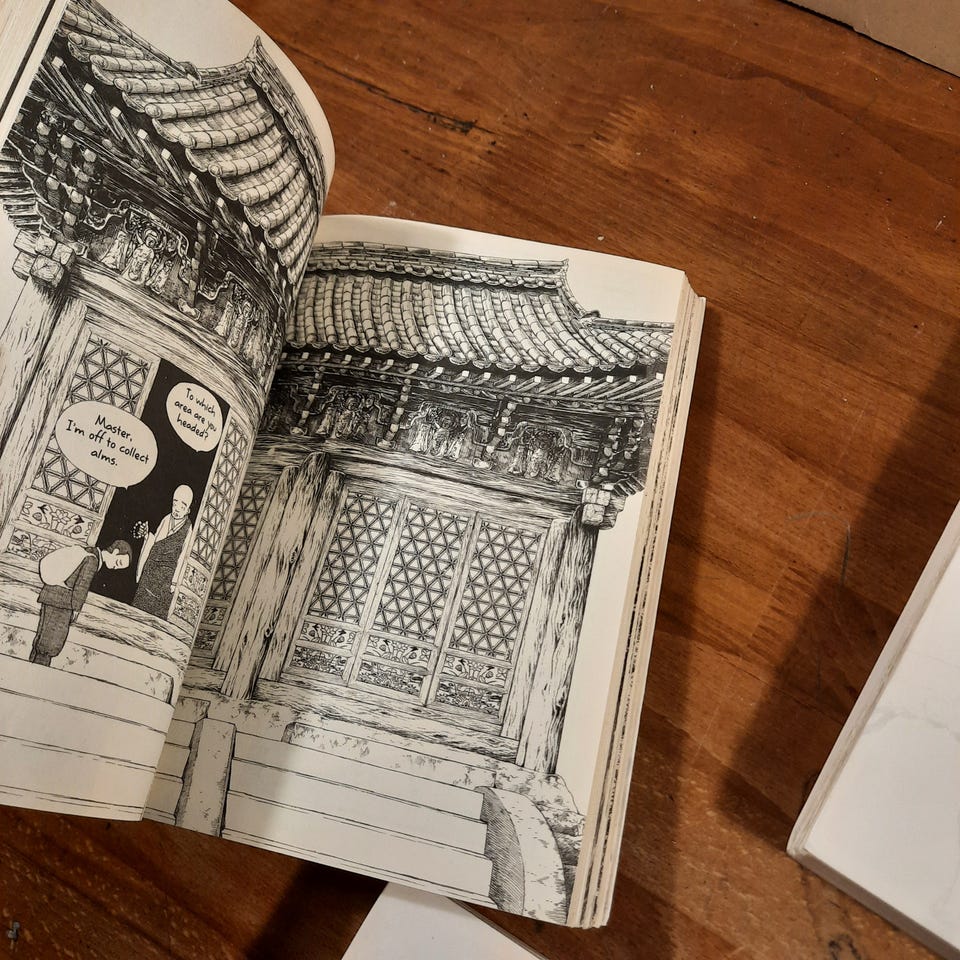 Master,
I'm off to collect
alms.
To which
area are you
headed?